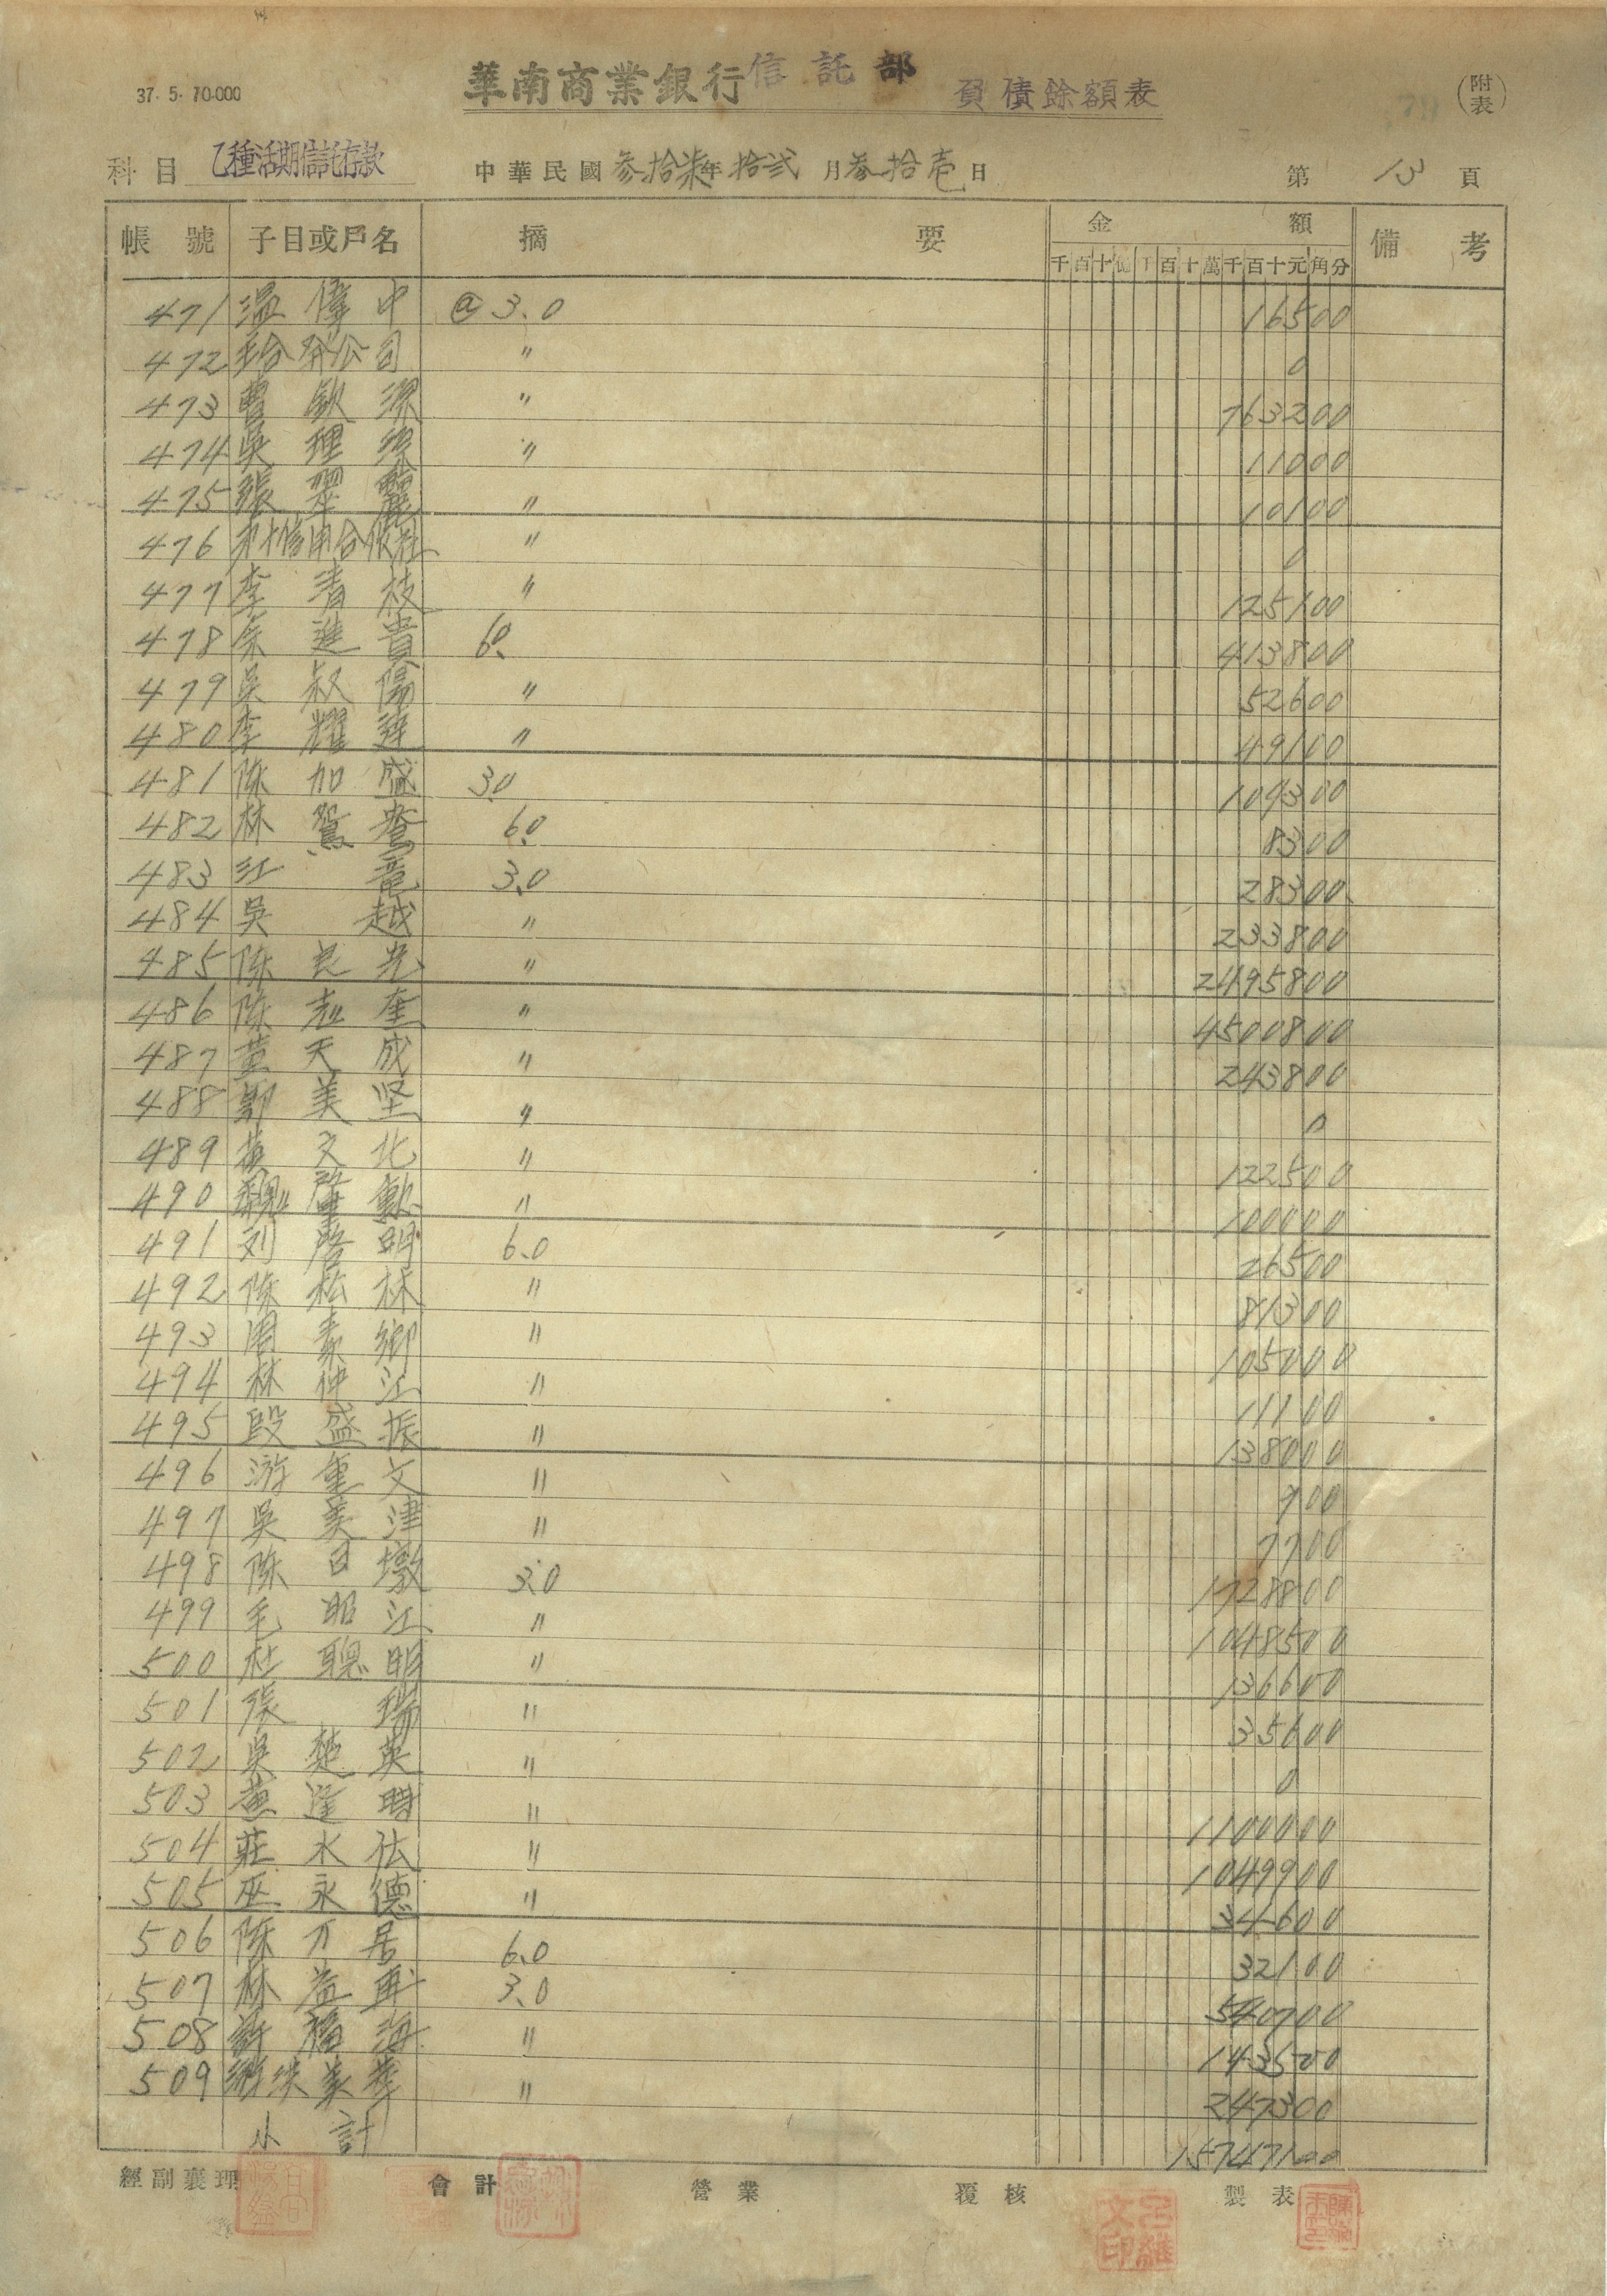 37. 5. 70.000
華南商業銀行信託部 負債餘額表 (附表)
科目 乙種活期信託存款 中華民國叁拾柒年拾弍月叁拾壱日 第 13 頁
帳號 子目或戶名 摘要 金額 備考
千百十億千百十萬千百十元角分
471 溫偉中 @3.0 16500
472 公司 〃 0
473 曹欽 〃 763200
474 吳理 〃 11000
475 張翠麗 〃 10100
476 信用合作社 〃 0
477 李清枝 〃 125100
478 余進貴 6.0 413800
479 吳叔陽 〃 52600
480 李耀達 〃 49100
481 陈加盛 3.0 109300
482 林鴛鴦 6.0 8300
483 江竜 3.0 28300
484 吳越 〃 233800
485 陈良光 〃 2495800
486 陈奎 〃 4500800
487 黃天成 〃 243800
488 鄭美坚 〃 0
489 黃文北 〃 122500
490 魏 〃 100000
491 刘啓明 6.0 26500
492 陈松林 〃 81300
493 周素鄉 〃 105000
494 林仲江 〃 11100
495 段盛振 〃 138000
496 游重文 〃 900
497 吳美津 〃 7700
498 陈日墩 3.0 1728800
499 毛昭江 〃 1048500
500 杜聰明 〃 136600
501 張瑞 〃 35600
502 吳楚英 〃 0
503 黃逢時 〃 1100000
504 莊水伝 〃 1049900
505 巫永德 〃 34600
506 陈才居 6.0 32100
507 林益再 3.0 540700
508 許福海 〃 143500
509 美華 〃 247300
小計 15747100
經副襄理 會計 營業 覆核 製表